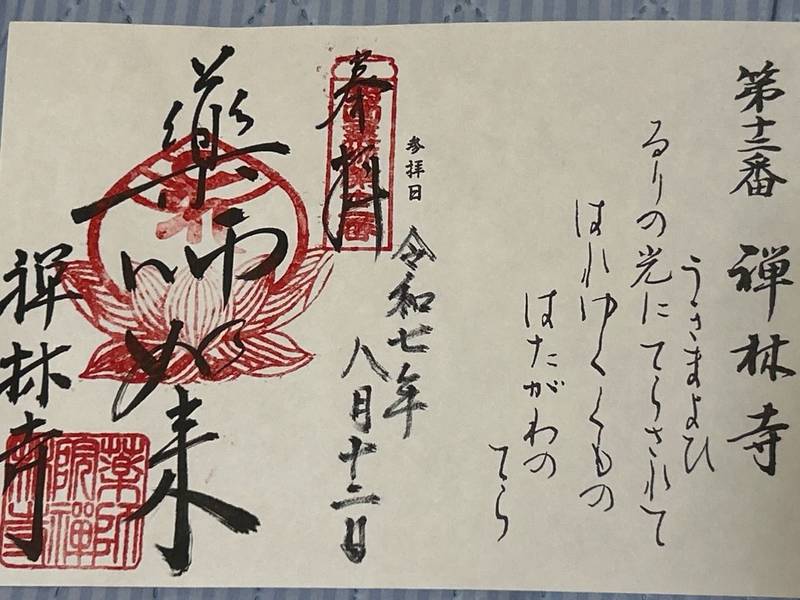 第十二番 禅林寺
うきまよひ
るりの光にてらされて
はれゆくくもの
はたがわの
てら
参拝日
令和七年
八月十二日
奉拝
薬師如来
禅林寺
藥師
院禪
林寺